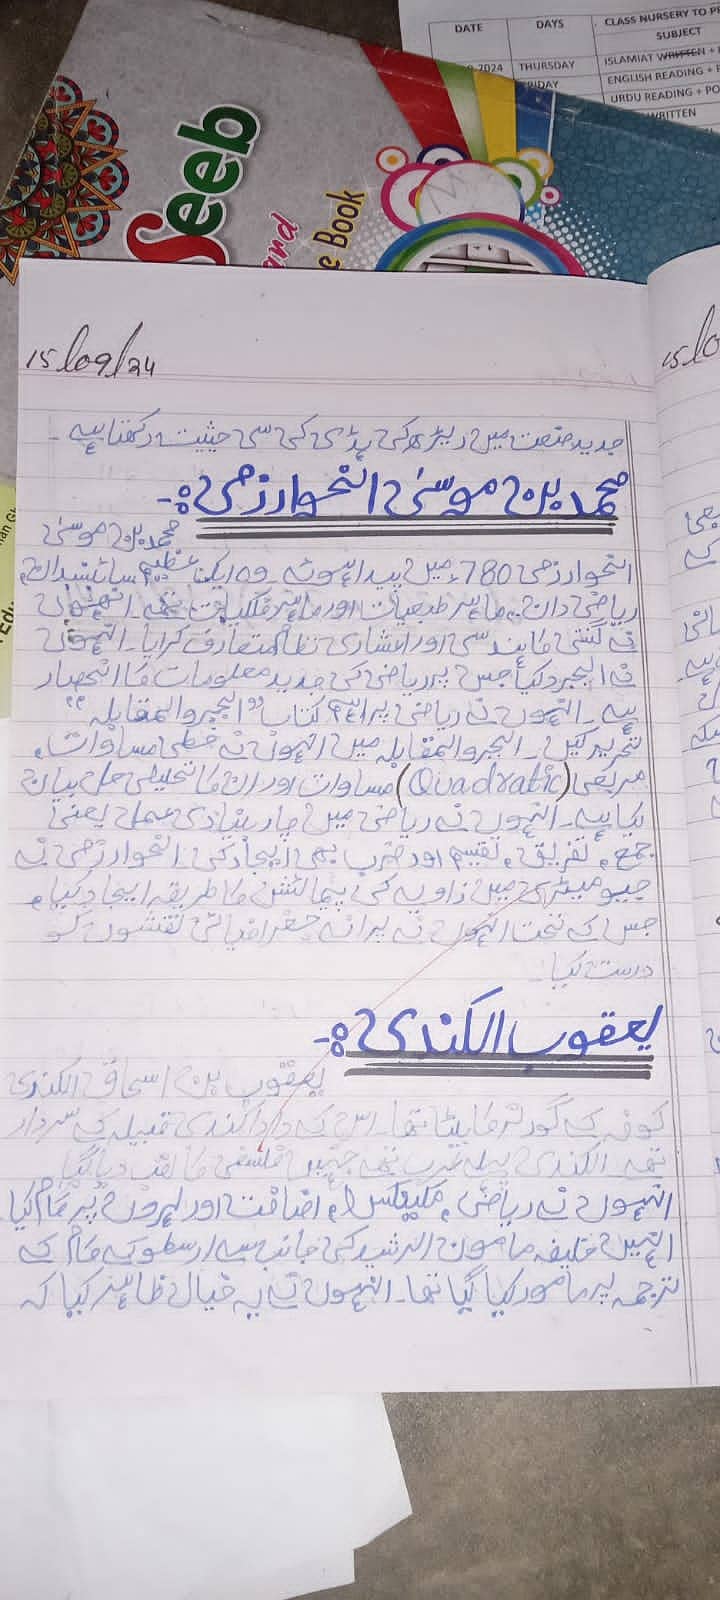 DATE DAYS CLASS NURSERY TO
SUBJECT
2024 THURSDAY ISLAMIAT WRITTEN +
ENGLISH READING +
URDU READING + PO
WRITTEN
Seeb
Book
15/09/24
جدید صنعت میں ریڑھ کی ہڈی کی سی حیثیت رکھتا ہے۔
محمد بن موسیٰ الخوارزمی:-
محمد بن موسیٰ
الخوارزمی 780ء میں پیدا ہوئے۔ وہ ایک عظیم سائنسدان،
ریاضی دان، ماہر طبعیات اور ماہر فلکیات تھے۔ انھوں
نے گنتی کا ہندسی اور اعشاری نظام متعارف کرایا۔ انہوں
نے الجبرا دیا جس پر ریاضی کی جدید معلومات کا انحصار
ہے۔ انہوں نے ریاضی پر اہم کتاب "الجبر والمقابلہ"
تحریر کیں۔ الجبر والمقابلہ میں انہوں نے خطی مساوات،
مربعی (Quadratic) مساوات اور ان کا تحلیلی حل بیان
کیا ہے۔ انہوں نے ریاضی میں چار بنیادی عمل یعنی
جمع، تفریق، تقسیم اور ضرب بھی ایجاد کی۔ الخوارزمی نے
جیومیٹری میں زاویہ کی پیمائش کا طریقہ ایجاد کیا،
جس کے تحت انہوں نے پرانے جغرافیائی نقشوں کو
درست کیا۔
یعقوب الکندی:-
یعقوب بن اسحاق الکندی
کوفہ کے گورنر کا بیٹا تھا۔ اس کے دادا کندی قبیلہ کے سردار
تھے۔ الکندی پہلے عرب تھے جنہیں فلسفی کا لقب دیا گیا
انہوں نے ریاضی، اضافت اور لہروں پر کام کیا
انہیں خلیفہ مامون الرشید کی جانب سے ارسطو کے کام کے
ترجمہ پر مامور کیا گیا تھا۔ انہوں نے یہ خیال ظاہر کیا کہ